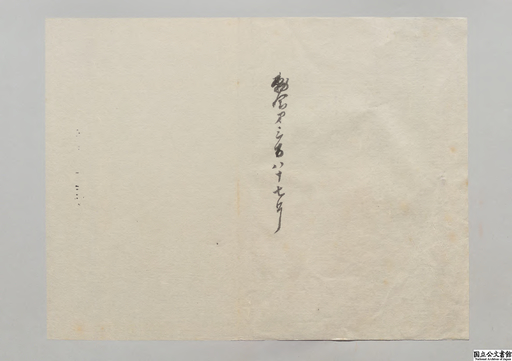 勅令第三百八十七号
国立公文書館
National Archives of Japan